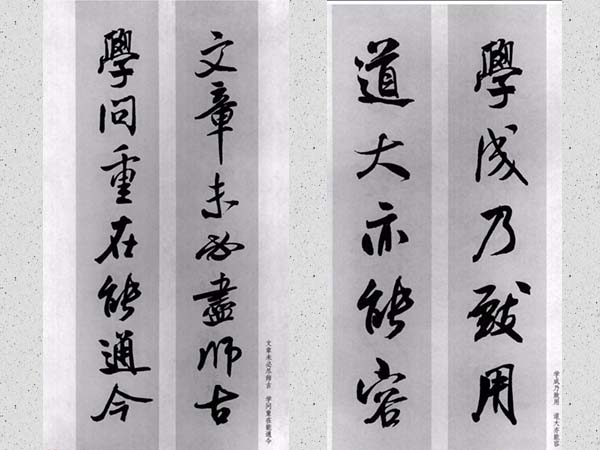 文章未必盡師古
學问重在能通今
文章未必尽师古 学问重在能通今
學成乃致用
道大亦能容
学成乃致用 道大亦能容